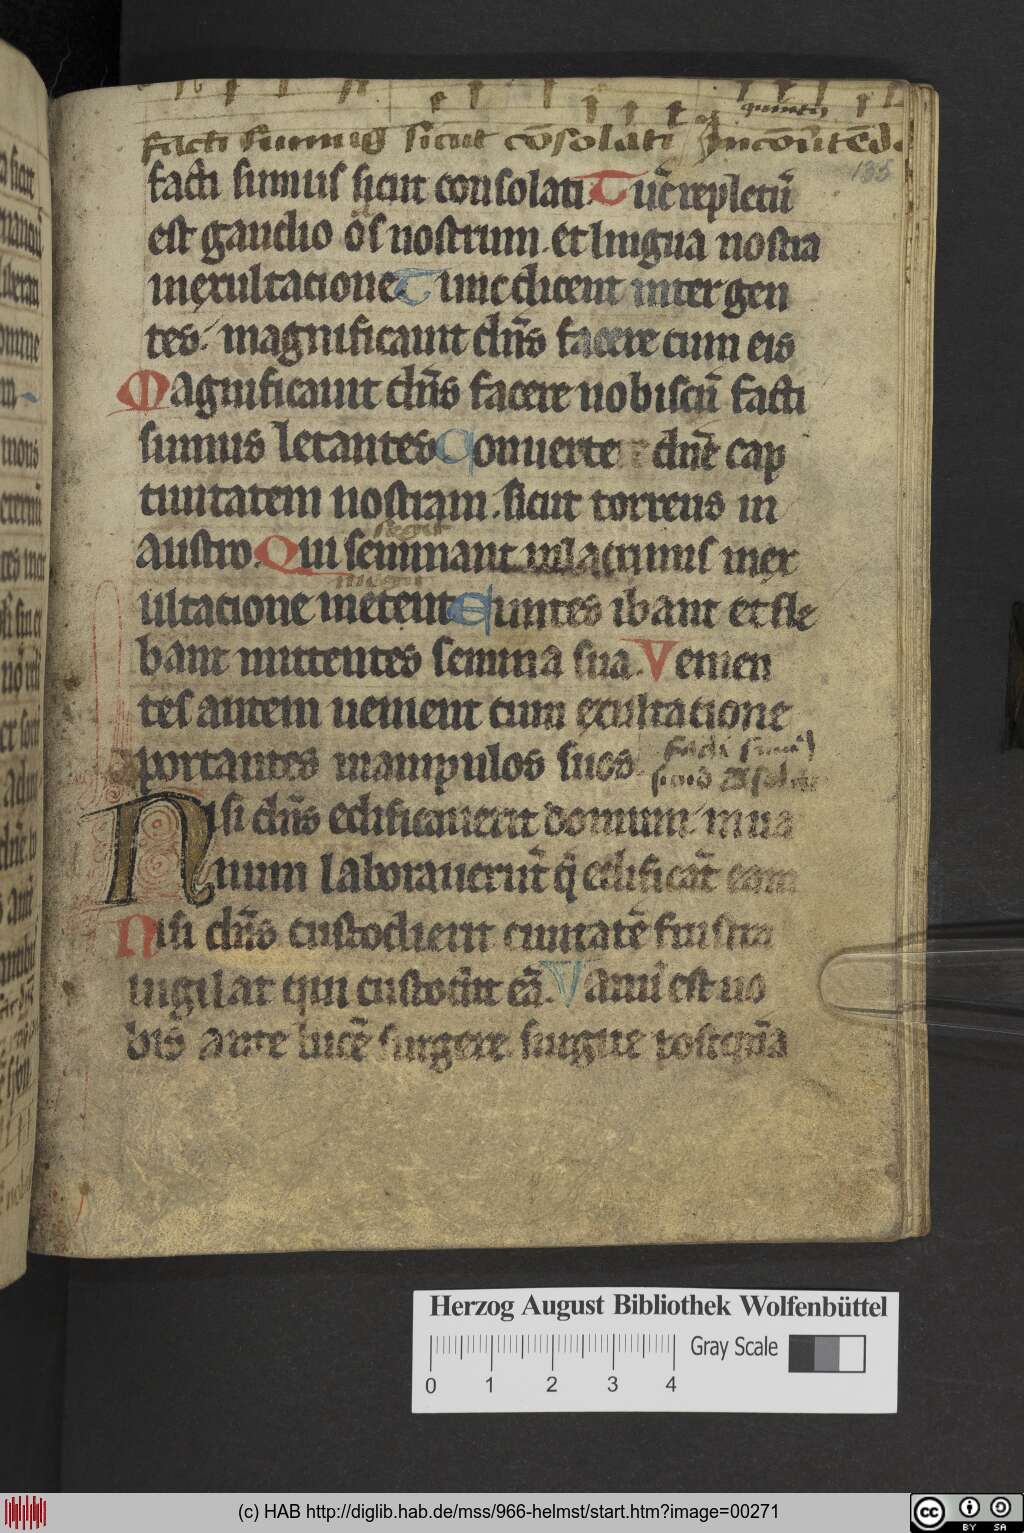 facti sumus sicut cōsolati
135
facti sumus sicut consolati. Tūc repletū
est gaudio os nostrum. et lingua nostra
in exultacione Tunc dicent inter gen
tes. magnificauit dn̄s facere cum eis
Magnificauit dn̄s facere nobiscū facti
sumus letantes Conuerte dn̄e cap
tiuitatem nostram. sicut torrens in
austro. Qui seminant in lacrimis in ex
ultacione metent Euntes ibant et fle
bant mittentes semina sua. Venien
tes autem uenient cum exultatione
portantes manipulos suos
facti sumꝰ
Nisi dn̄s edificauerit domum. in ua
nuum laborauerūt q̄ edificāt eam
Nisi dn̄s custodierit ciuitatē frustra
uigilat qui custodit eā. Vanū est uo
bis ante lucē surgere surgite postquā
Herzog August Bibliothek Wolfenbüttel
0 1 2 3 4 Gray Scale
(c) HAB http://diglib.hab.de/mss/966-helmst/start.htm?image=00271
cc BY SA